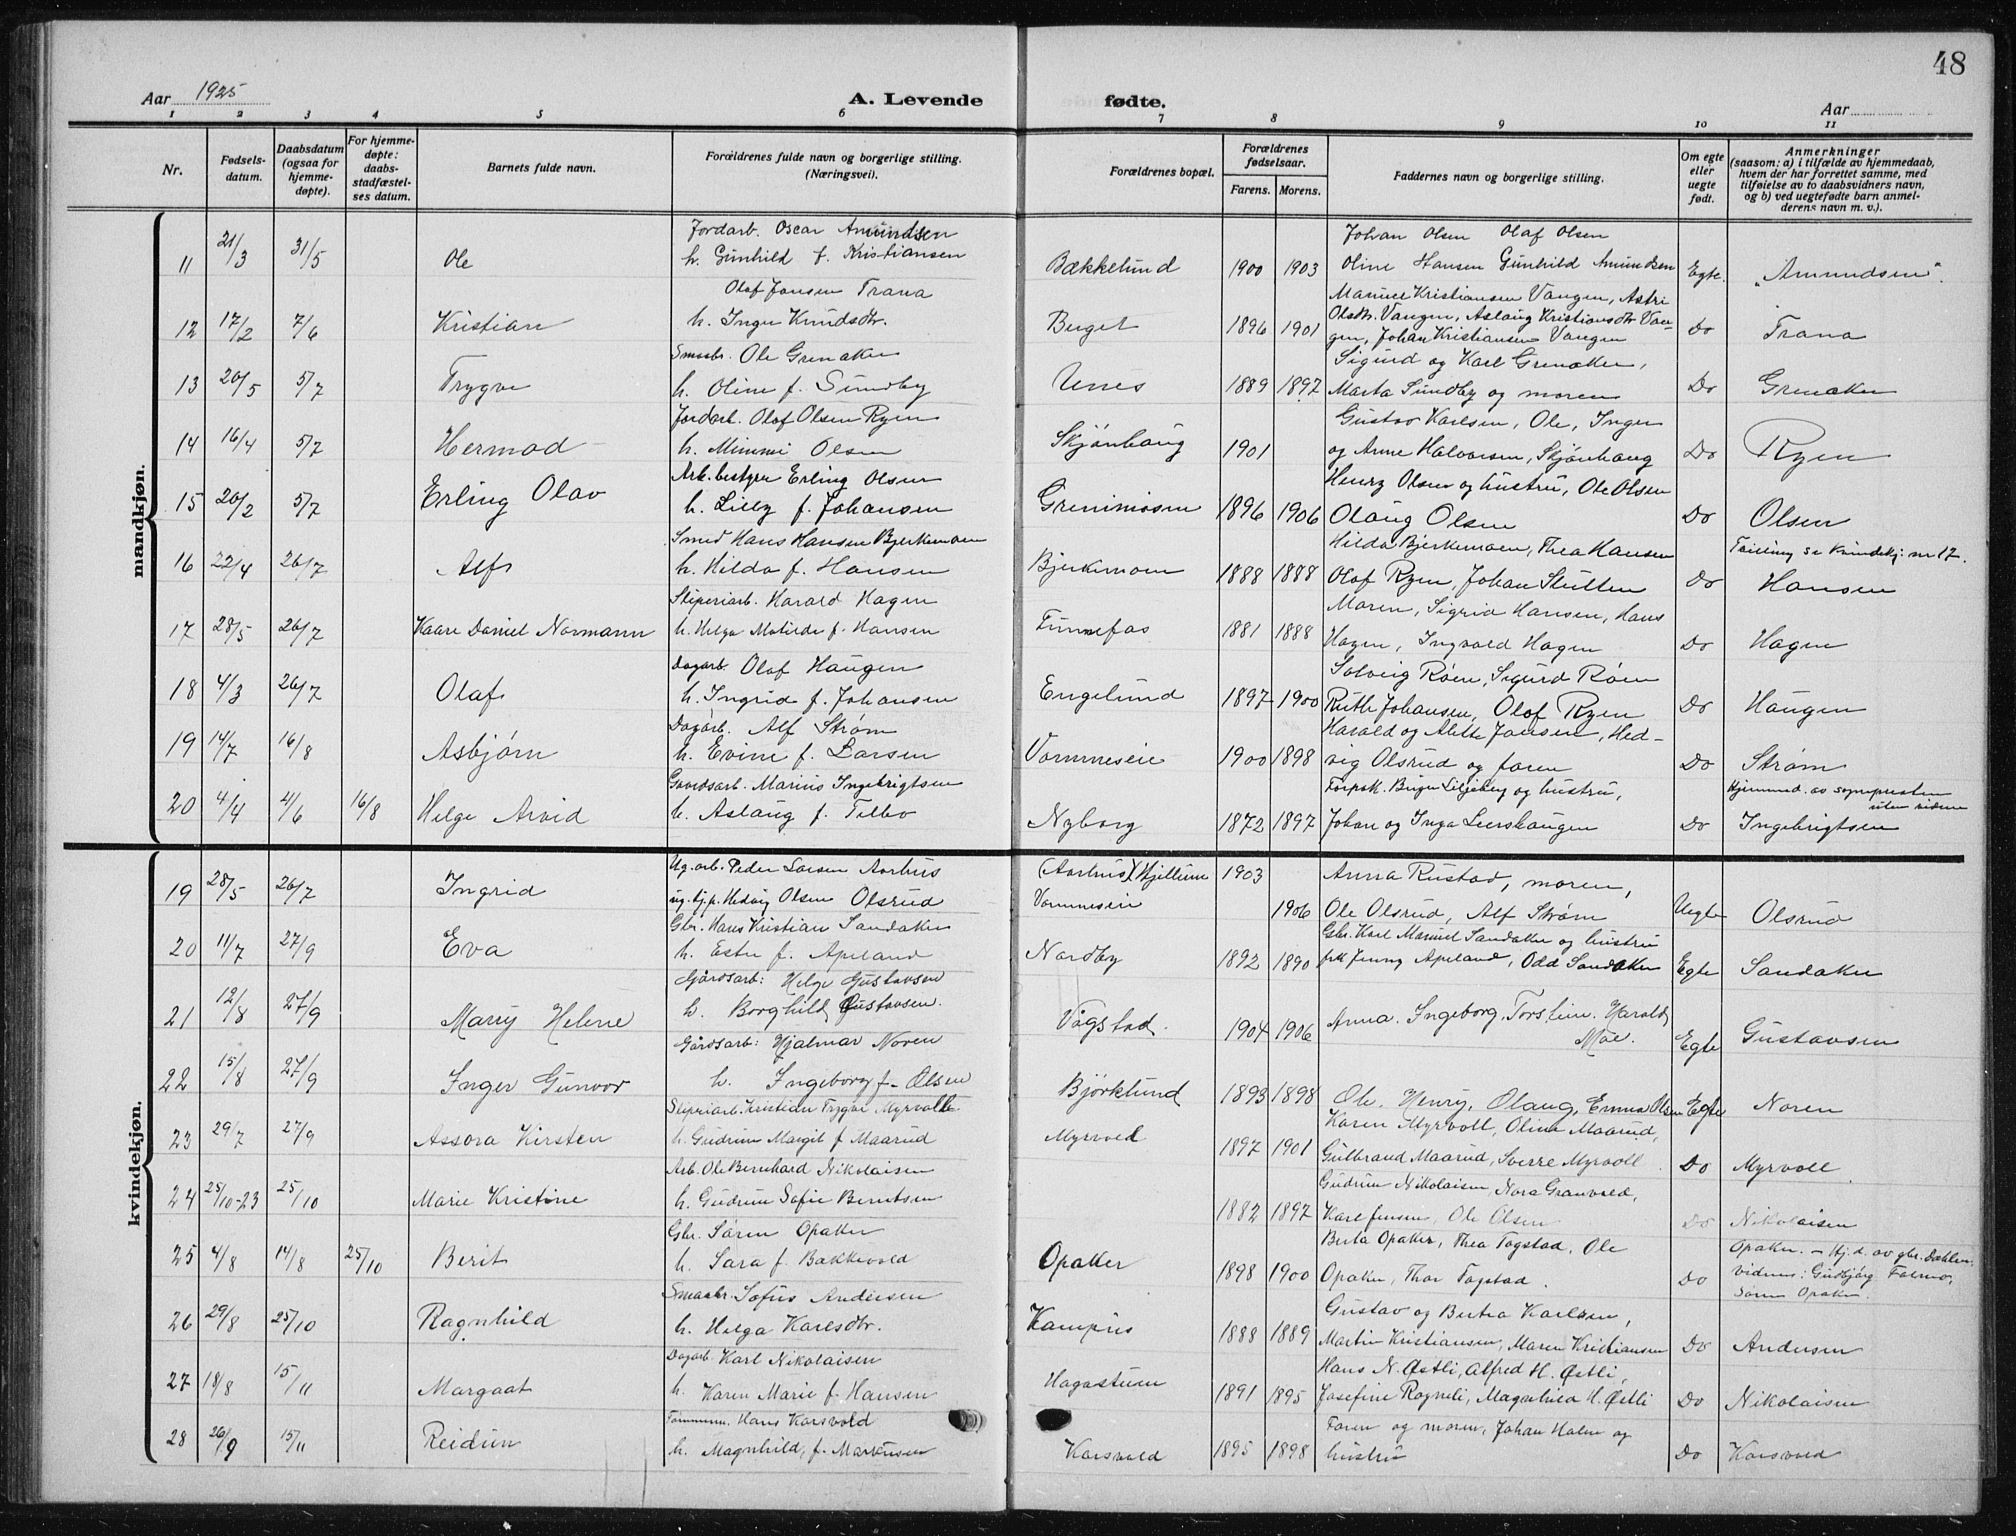 48
Aar 1925
A. Levende
fødte.
Aar
1 2 3 4 5 6 7 8 9 10 11
Nr.
Fødsels-
datum.
Daabsdatum
(ogsaa for
hjemme-
døpte).
For hjemme-
døpte:
daabs-
stadfæstel-
ses datum.
Barnets fulde navn.
Forældrenes fulde navn og borgerlige stilling.
(Næringsvei).
Forældrenes bopæl.
Forældrenes
fødselsaar.
Farens. Morens.
Faddernes navn og borgerlige stilling.
Om egte
eller
uegte
født.
Anmerkninger
(saasom: a) i tilfælde av hjemmedaab,
hvem der har forrettet samme, med
tilføielse av to daabsvidners navn,
og b) ved uegtefødte barn anmel-
derens navn m. v.).
mandkjøn.
Jordarb. Oscar Amundsen Johan Olsen Olaf Olsen
11 21/3 31/5 Ole h. Gunhild f. Kristiansen Bækkelund 1900 1903 Oline Hansen Gunhild Amundsen Egte. "Amundsen".
Olaf Jansen Trana Manuel Kristiansen Vangen, Astri
12 17/2 7/6 Kristian h. Inga Knudsdtr. Berget 1896 1901 Olsdtr. Vangen, Aslaug Kristiansdtr Van- Do Trana
gen, Johan Kristiansen Vangen
Smaabr. Ole Grenaker Sigurd og Karl Grenaker,
13 20/5 5/7 Trygve h. Oline f. Sundby Unes 1889 1897 Marta Sundby og moren Do Grenaker
Jordarb. Olaf Olsen Ryen Gustav Karlsen, Ole, Inger
14 16/4 5/7 Hermod h. Mimmi Olsen Skjønhaug 1901 og Arne Halvorsen, Skjønhaug Do Ryen
Arb.bestyrer Erling Olsen Henry Olsen og hustru, Ole Olsen
15 20/2 5/7 Erling Olav h. Lilly f. Johansen Grenimosen 1896 1906 Olaug Olsen Do Olsen
Smed Hans Hansen Bjerkemoen Hilda Bjerkemoen, Thea Hansen Tvilling se kvindekj. nr 17.
16 22/4 26/7 Alf h. Hilda f. Hansen Bjerkemoen 1888 1888 Olaf Ryen, Johan Slutten Do Hansen
Sliperiarb. Harald Hagen Moren, Sigrid Hansen, Hans
17 28/5 26/7 Kaare Daniel Normann h. Helga Matilde f. Hansen Funnefos 1881 1888 Hagen, Ingvald Hagen Do Hagen
Dagarb. Olaf Haugen Solveig Røen, Sigurd Røen
18 4/3 26/7 Olaf h. Ingrid f. Johansen Engelund 1897 1900 Ruth Johansen, Olaf Ryen Do Haugen
Dagarb. Alf Strøm Harald og Alette Jansen, Hed-
19 14/7 16/8 Asbjørn h. Evine f. Larsen Vormneseie 1900 1898 vig Olsrud og faren Do Strøm
Gaardsarb. Marius Ingebrigtsen Forpak. Birger Liljeberg og hustru, Hjemmed. av sogneprsten
uten vidner
20 4/4 4/6 16/8 Helge Arvid h. Aslaug f. Tilbo Nyborg 1872 1897 Johan og Inga Leershaugen Do Ingebrigtsen
kvindekjøn.
Ug.arb. Peder Larsen Aarhus (Aarhus) Hjellum 1903 Anna Rustad, moren,
19 28/5 26/7 Ingrid ug. tj.p. Hedvig Olsen Olsrud Vormneseie 1906 Ole Olsrud, Alf Strøm Uegte Olsrud
Gbr. Hans Kristian Sandaker Gbr. Karl Manuel Sandaker og hustru
20 11/7 27/9 Eva h. Ester f. Apeland Nordby 1892 1890 frk Jenny Apeland, Odd Sandaker Egte Sandaker
Gårdsarb: Helge Gustavsen
21 12/8 27/9 Marry Helene h. Borghild Gustavsen. Vågstad. 1904 1906 Anna. Ingeborg. Torstein. Harald Moe. Egte Gustavsen
Gårdsarb: Hjalmar Noren
22 15/8 27/9 Inger Gunvor h. Ingeborg f. Olsen Bjørklund 1893 1898 Ole. Henry, Olaug, Emma Olsen Egte Noren
Slipriarb. Kristian Trygve Myrvold. Karen Myrvoll, Olina Maarud,
23 29/7 27/9 Assora Kirsten h. Gudrun Margit f Maarud Myrvold 1897 1901 Gulbrand Maarud, Sverre Myrvoll Do Myrvoll
Arb. Ole Bernhard Nikolaisen Gudrun Nikolaisen, Nora Granvold,
24 25/10-23 25/10 Marie Kristine h. Gudrun Sofie Berntsen 1882 1897 Karl Jensen, Ole Olsen Do Nikolaisen
Gbr. Søren Opaker Berta Opaker, Thea Fogstad, Ole Opaker. - Hj.d. av gbr. Dæhlen.
25 4/8 14/8 25/10 Berit h. Sara f. Bakkevold Opaker 1898 1900 Opaker, Thor Fogstad. Do Vidner: Gudbjørg Folmo,
Søren Opaker.
Smaabr. Sofus Andersen Gustav og Berta Karlsen,
26 29/8 25/10 Ragnhild h. Helga Karlsdtr. Kampus 1888 1889 Martin Kristiansen, Maren Kristiansen Do Andersen
Dagarb. Karl Nikolaisen Hans N. Østli, Alfred H. Østli,
27 18/8 15/11 Margaat h. Karen Marie f. Hansen Hagastuen 1891 1895 Josefine Rogneli, Magnhild H. Østli Do Nikolaisen
Tømmerm. Hans Korsvold Faren og moren, Johan Holm og
28 26/9 15/11 Reidun h. Magnhild, f. Markussen Korsvold 1895 1898 hustru Do Korsvold